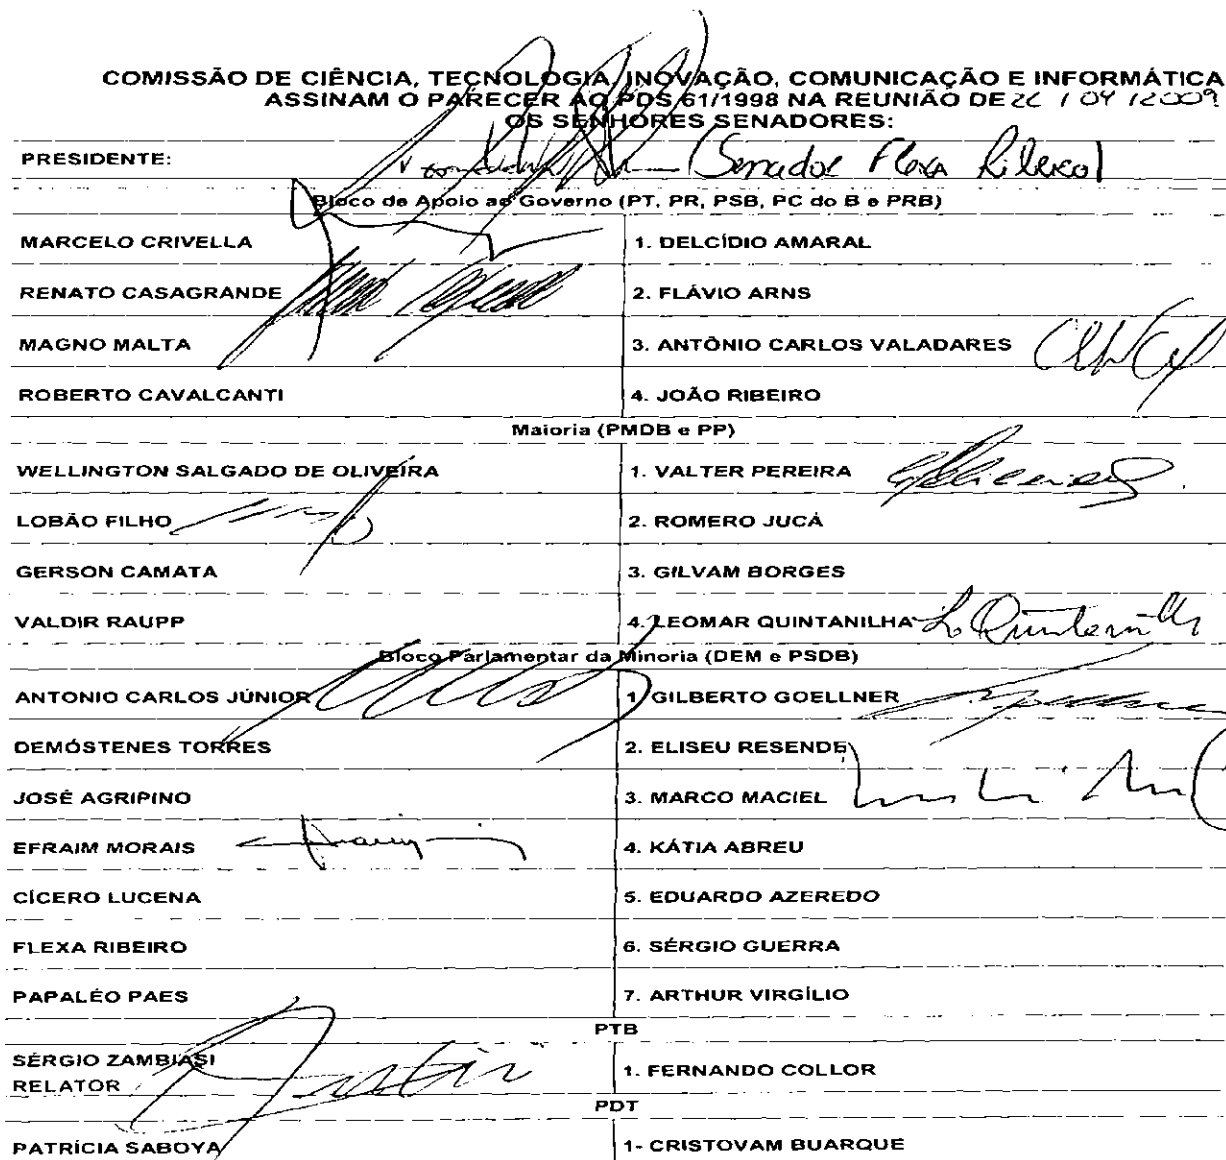 COMISSÃO DE CIÊNCIA, TECNOLOGIA, INOVAÇÃO, COMUNICAÇÃO E INFORMÁTICA
ASSINAM O PARECER AO PDS 61/1998 NA REUNIÃO DE 22 / 04 / 2009
OS SENHORES SENADORES:
PRESIDENTE: (Senador Flexa Ribeiro)
Bloco de Apoio ao Governo (PT, PR, PSB, PC do B e PRB)
MARCELO CRIVELLA 1. DELCÍDIO AMARAL
RENATO CASAGRANDE 2. FLÁVIO ARNS
MAGNO MALTA 3. ANTÔNIO CARLOS VALADARES
ROBERTO CAVALCANTI 4. JOÃO RIBEIRO
Maioria (PMDB e PP)
WELLINGTON SALGADO DE OLIVEIRA 1. VALTER PEREIRA
LOBÃO FILHO 2. ROMERO JUCÁ
GERSON CAMATA 3. GILVAM BORGES
VALDIR RAUPP 4. LEOMAR QUINTANILHA L. Quintanilha
Bloco Parlamentar da Minoria (DEM e PSDB)
ANTONIO CARLOS JÚNIOR 1. GILBERTO GOELLNER
DEMÓSTENES TORRES 2. ELISEU RESENDE
JOSÉ AGRIPINO 3. MARCO MACIEL
EFRAIM MORAIS 4. KÁTIA ABREU
CÍCERO LUCENA 5. EDUARDO AZEREDO
FLEXA RIBEIRO 6. SÉRGIO GUERRA
PAPALÉO PAES 7. ARTHUR VIRGÍLIO
PTB
SÉRGIO ZAMBIASI
RELATOR 1. FERNANDO COLLOR
PDT
PATRÍCIA SABOYA 1- CRISTOVAM BUARQUE